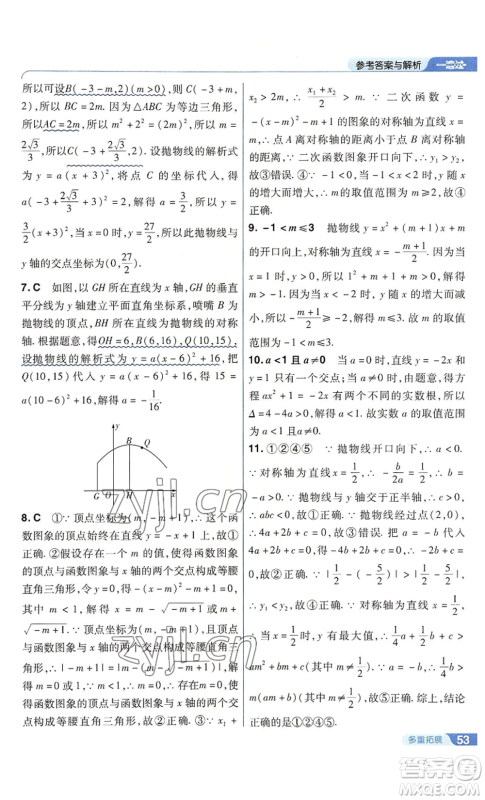 参考答案与解析
所以可设B(-3-m,2)(m>0),则C(-3+m,
2),所以BC=2m.因为△ABC为等边三角形,
所以AC=2m,所以m²+2²=(2m)²,所以m=
2√3/3,所以C(-3+2√3/3,2).设抛物线的解析式
为y=a(x+3)²,将点C的坐标代入,得
a(-3+2√3/3+3)²=2,解得a=3/2,所以y=
3/2(x+3)²,当x=0时,y=27/2,所以此抛物线与
y轴的交点坐标为(0,27/2).
7.C 如图,以地面为x轴,以GH的垂直
平分线为y轴建立平面直角坐标系,喷嘴B为
抛物线的顶点,
轴.根据题意,得OH=6,B(6,16),Q(10,15),
设抛物线的解析式为y=a(x-6)²+16,把
Q(10,15)代入y=a(x-6)²+16,得15=
a(10-6)²+16,解得a=-1/16.
Q
G
O
H
x
8.C ①∵顶点坐标为(m,-m+1),∴这个函
数图象的顶点始终在直线y=-x+1上,故①
正确.②假设存在一个m的值,使得函数图象
的顶点与函数图象与x轴的两个交点构成等腰
直角三角形,令y=0,得-(x-m)²-m+1=
0,其中m≤1,解得x=m-√-m+1或m+
√-m+1.∵顶点坐标为(m,-m+1),且顶点
与函数图象与x轴的两个交点构成等腰直角三
角形,∴|-m+1|=|m-(m-√-m+1)|,
解得m=0或1,当m=1时,二次函数y=
-(x-1)²,此时顶点为(1,0),与x轴的交点为
(1,0),不构成三角形,舍去,∴存在m=0,使得
函数图象的顶点与函数图象与x轴的两个交点
构成等腰直角三角形,故②正确.③∵x₁+
x₂>2m,∴(x₁+x₂)/2>m.∵二次函数y=
-(x-m)²-m+1的图象的对称轴为直线x=
m,∴点A离对称轴的距离小于点B离对称轴
的距离.∵二次函数图象开口向下,∴y₁>y₂,
故③错误.④∵-1<0,∴当x>m时,y随x
的增大而减小,∴m的取值范围为m≥2,故④
正确.
9.-1<m≤3 抛物线y=x²+(m+1)x+m
的开口向上,对称轴为直线x=-(m+1)/2.∵当
x=1时,y>0,所以1²+m+1+m>0,解得
m>-1.因为当x<-2时,y随x的增大而减
小,所以-(m+1)/2≥-2,解得m≤3.所以-1<
m≤3.
10.a<1且a≠0 当a=0时,直线y=-2x和
y轴只有一个交点;当a≠0时,由题意,得方
程ax²-2x+1=0有两个不相等的实数根,所以
Δ=4-4a>0,所以实数a的取值范围为a<1
且a≠0.
11.①②④⑤ ∵抛物线开口向下,∴a<0.
∵对称轴为直线x=1/2,∴-b/(2a)=1/2,∴b=-a>
0.∵抛物线与y轴交于正半轴,∴c>0,∴
abc<0,故①正确.∵抛物线经过点(2,0),∴
4a+2b+c=0,故②正确,③错误.∵对称轴为直
线x=1/2,∴
y₁<y₂,故④正确.∵对称轴为直线x=1/2,∴
当x=1/2时,y取得最大值,∴1/4a+1/2b+c≥
am²+bm+c(m为任意实数).∵a=-b,∴1/4b
≥m(am+b),故⑤正确.综上,结论
正确的是①②④⑤.
zyjl.cn
zyjl.cn
多重拓展 53
答案圈
MXQE.COM